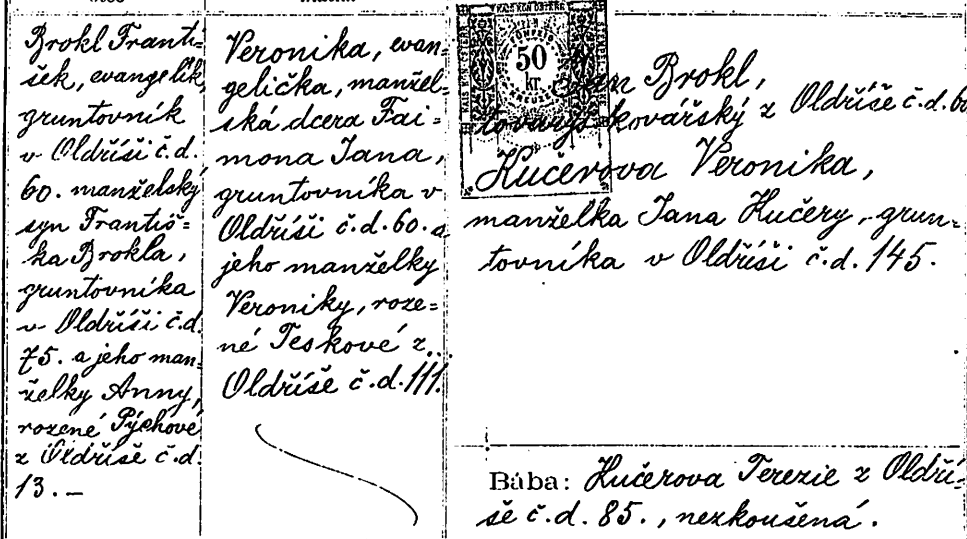 Brokl Franti-
šek, evangelík,
gruntovník
v Oldříši č.d.
60. manželský
syn Františ=
ka Brokla,
gruntovníka
v Oldříši č.d.
75. a jeho man-
želky Anny,
rozené Pýchové
z Oldříše č.d.
13. –
Veronika, evan=
gelička, manžel-
ská dcera Fai=
mona Jana,
gruntovníka v
Oldříši č.d. 60. a
jeho manželky
Veroniky, roze=
né Teskové z
Oldříše č.d. 111.
50
kr.
Brokl,
tovaryš kovářský z Oldříše č.d. 60
Kučerova Veronika,
manželka Jana Kučery, grun=
tovníka v Oldříši č.d. 145.
Bába: Kučerova Terezie z Oldří-
še č.d. 85., nezkoušená.